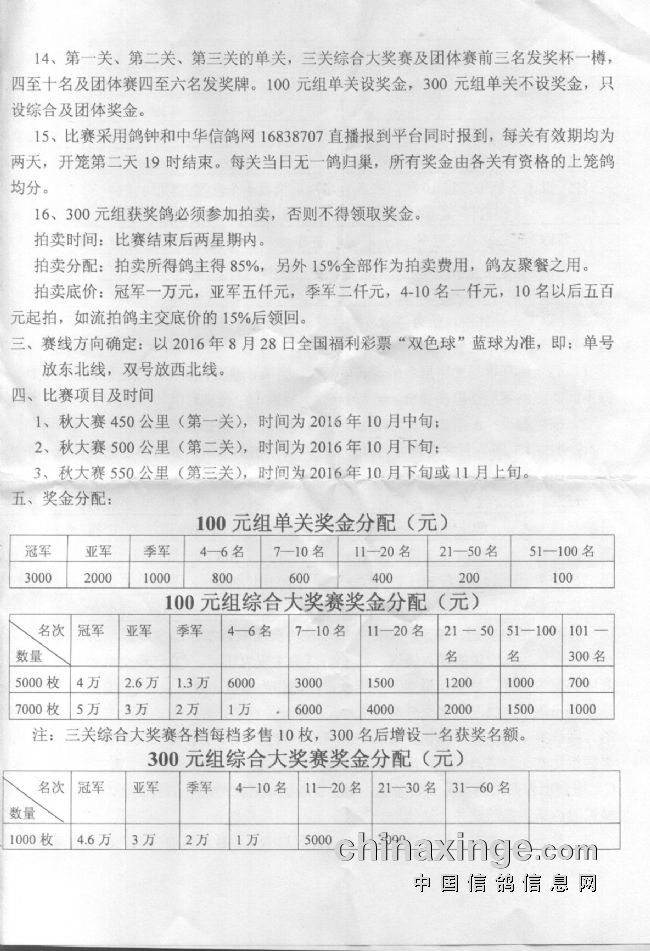 14、第一关、第二关、第三关的单关，三关综合大奖赛及团体赛前三名发奖杯一樽，
四至十名及团体赛四至六名发奖牌。100 元组单关设奖金，300 元组单关不设奖金，只
设综合及团体奖金。
15、比赛采用鸽钟和中华信鸽网 16838707 直播报到平台同时报到，每关有效期均为
两天，开笼第二天 19 时结束。每关当日无一鸽归巢，所有奖金由各关有资格的上笼鸽
均分。
16、300 元组获奖鸽必须参加拍卖，否则不得领取奖金。
拍卖时间：比赛结束后两星期内。
拍卖分配：拍卖所得鸽主得 85%，另外 15%全部作为拍卖费用，鸽友聚餐之用。
拍卖底价：冠军一万元，亚军五仟元，季军二仟元，4-10 名一仟元，10 名以后五百
元起拍，如流拍鸽主交底价的 15%后领回。
三、赛线方向确定：以 2016 年 8 月 28 日全国福利彩票“双色球”蓝球为准，即：单号
放东北线，双号放西北线。
四、比赛项目及时间
1、秋大赛 450 公里（第一关），时间为 2016 年 10 月中旬；
2、秋大赛 500 公里（第二关），时间为 2016 年 10 月下旬；
3、秋大赛 550 公里（第三关），时间为 2016 年 10 月下旬或 11 月上旬。
五、奖金分配：
100 元组单关奖金分配（元）
冠军 亚军 季军 4—6 名 7—10 名 11—20 名 21—50 名 51—100 名
3000 2000 1000 800 600 400 200 100
100 元组综合大奖赛奖金分配（元）
名次 冠军 亚军 季军 4—6 名 7—10 名 11—20 名 21 — 50 51—100 101 —
数量 名 名 300 名
5000 枚 4 万 2.6 万 1.3 万 6000 3000 1500 1200 1000 700
7000 枚 5 万 3 万 2 万 1 万 6000 4000 2000 1500 1000
注：三关综合大奖赛各档每档多售 10 枚，300 名后增设一名获奖名额。
300 元组综合大奖赛奖金分配（元）
名次 冠军 亚军 季军 4—10 名 11—20 名 21—30 名 31—60 名
数量
1000 枚 4.6 万 3 万 2 万 1 万 5000
chinaxinge.com
中国信鸽信息网